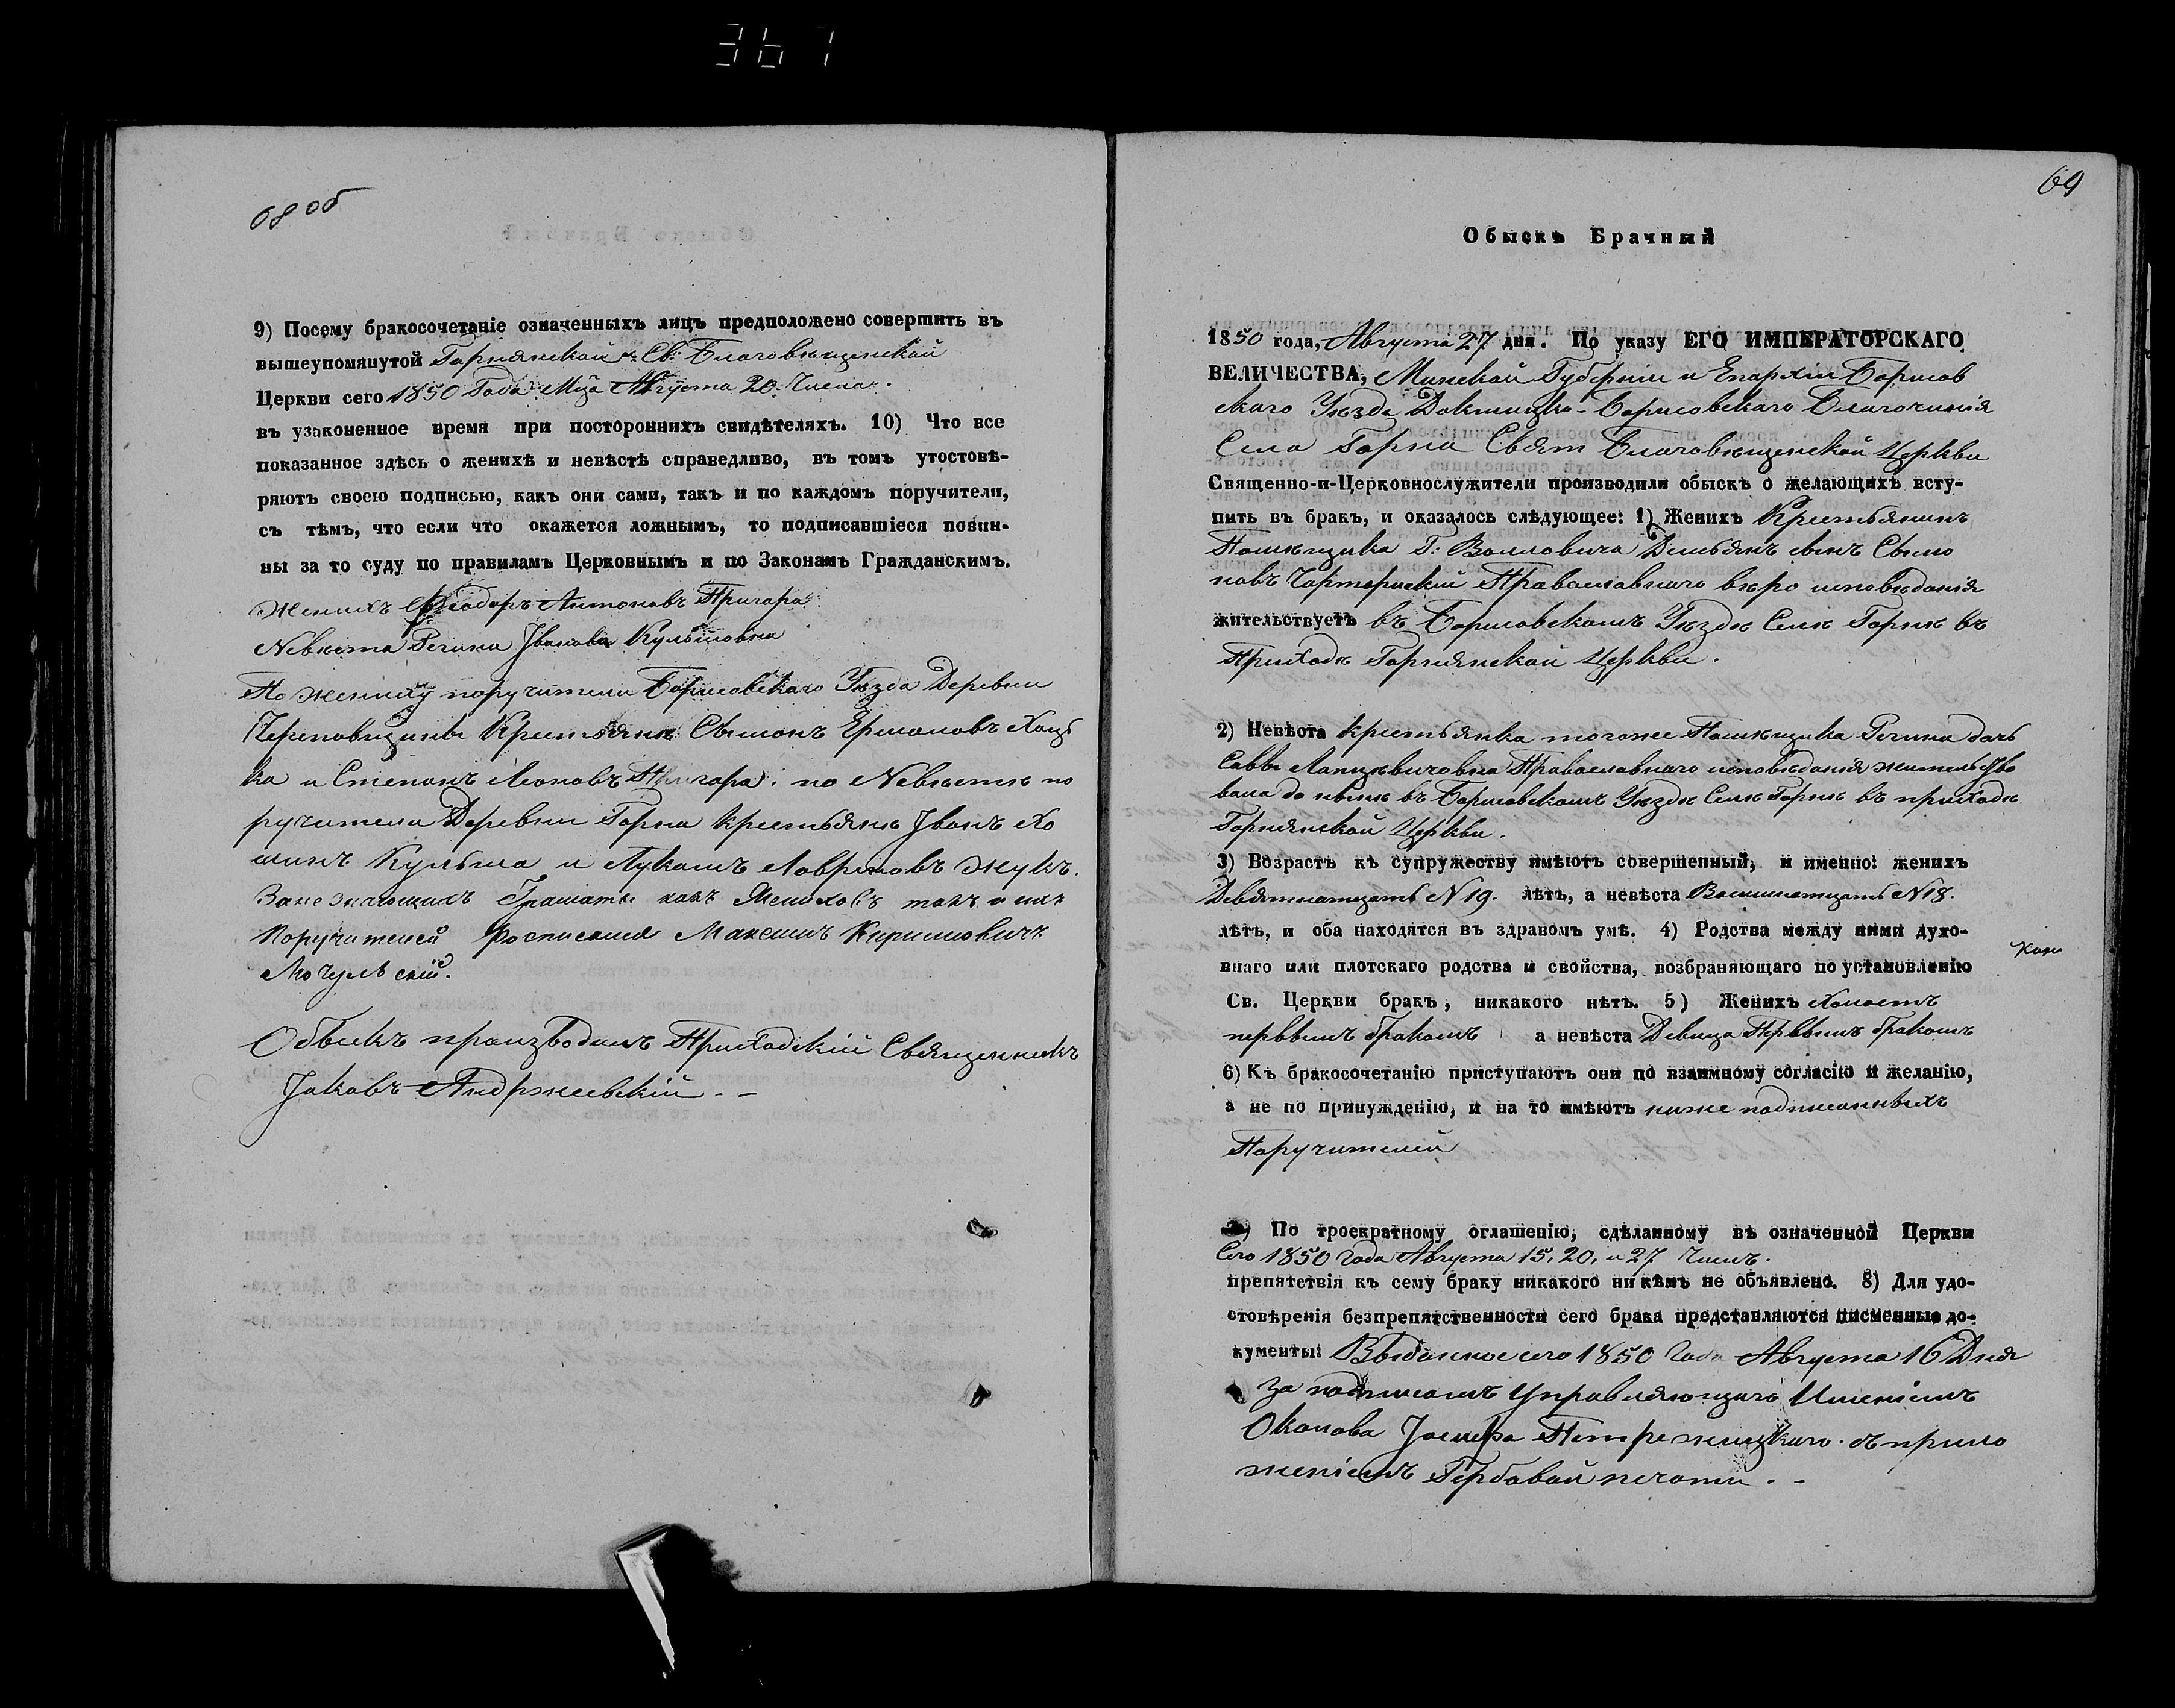 367
68 об
9) Посему бракосочетаніе означенныхъ лицъ предположено совершить въ
вышеупомянутой Горнянской Св: Благовѣщенской
Церкви сего 1850 Года Мца Августа 20. Числа.
въ узаконенное время при постороннихъ свидѣтеляхъ. 10) Что все
показанное здѣсь о женихѣ и невѣстѣ справедливо, въ томъ утостовѣ-
ряютъ своею подписью, какъ они сами, такъ и по каждомъ поручители,
съ тѣмъ, что если что окажется ложнымъ, то подписавшіеся повин-
ны за то суду по правиламъ Церковнымъ и по Законамъ Гражданскимъ.
Женихъ Феодоръ Антоновъ Пригара
Невѣста Регина Іванова Кульшовна
По жениху поручители Борисовскаго Уѣзда Деревни
Крестьяне Сымонъ Ермоловъ
ка и Степанъ Леоновъ Пригара. по Невѣстѣ по
ручители Деревни Горна крестьяне Іванъ Хо
минъ Кульша и Лукашъ Лавреновъ Жукъ.
За не знающихъ Грамоты какъ Жениховъ такъ и ихъ
Поручителей росписался Максимъ Кириловичъ
Мочульскій.
Обыскъ производилъ Приходскій Священникъ
Іаковъ Андржеевскій. -
69
Обыскъ Брачный
1850 года, Августа 27 дня. По указу ЕГО ИМПЕРАТОРСКАГО
ВЕЛИЧЕСТВА, Минской Губерніи и Епархіи Борисов
скаго Уѣзда Докшицко-Борисовскаго Благочинія
Села Горна Свят Благовѣщенской Церкви
Священно-и-Церковнослужители производили обыскъ о желающихъ всту-
пить въ бракъ, и оказалось слѣдующее: 1) Женихъ Крестьянинъ
Помѣщика Г: Воловича Демьянъ сынъ Сымо
новъ Православнаго вѣро исповѣданія
жительствуетъ въ Борисовскомъ Уѣздѣ Селѣ Горнѣ въ
Приходѣ Горнянской Церкви.
2) Невѣста крестьянка тогоже Помѣщика Регина дочь
Саввы Лапцевичовна Православнаго исповѣданія жительство
вала до нынѣ въ Борисовскомъ Уѣздѣ Селѣ Горнѣ въ приходѣ
Горнянской Церкви.
3) Возрастъ къ супружеству имѣютъ совершенный, и именно: женихъ
Девятнатцать N 19. лѣтъ, а невѣста Восимнатцать N 18.
лѣтъ, и оба находятся въ здравомъ умѣ. 4) Родства между ними духо-
внаго или плотскаго родства и свойства, возбраняющаго по установленію
Св. Церкви бракъ, никакого нѣтъ. 5) Женихъ Холостъ
первымъ бракомъ а невѣста Девица Первымъ бракомъ
6) Къ бракосочетанію приступаютъ они по взаимному согласію и желанію,
а не по принужденію, и на то имѣютъ ниже подписанныхъ
Поручителей
По троекратному оглашенію, сдѣланному въ означенной Церкви
Сего 1850 Года Августа 15, 20, и 27 Числъ.
препятствія къ сему браку никакого никѣмъ не объявлено. 8) Для удо-
стовѣренія безпрепятственности сего брака представляются писменные до-
кументы: Выданное сего 1850 Года Августа 16 Дня
за подписомъ Управляющаго Имѣніемъ
Околова Іосифа съ прило
женіемъ Гербовой печати. -